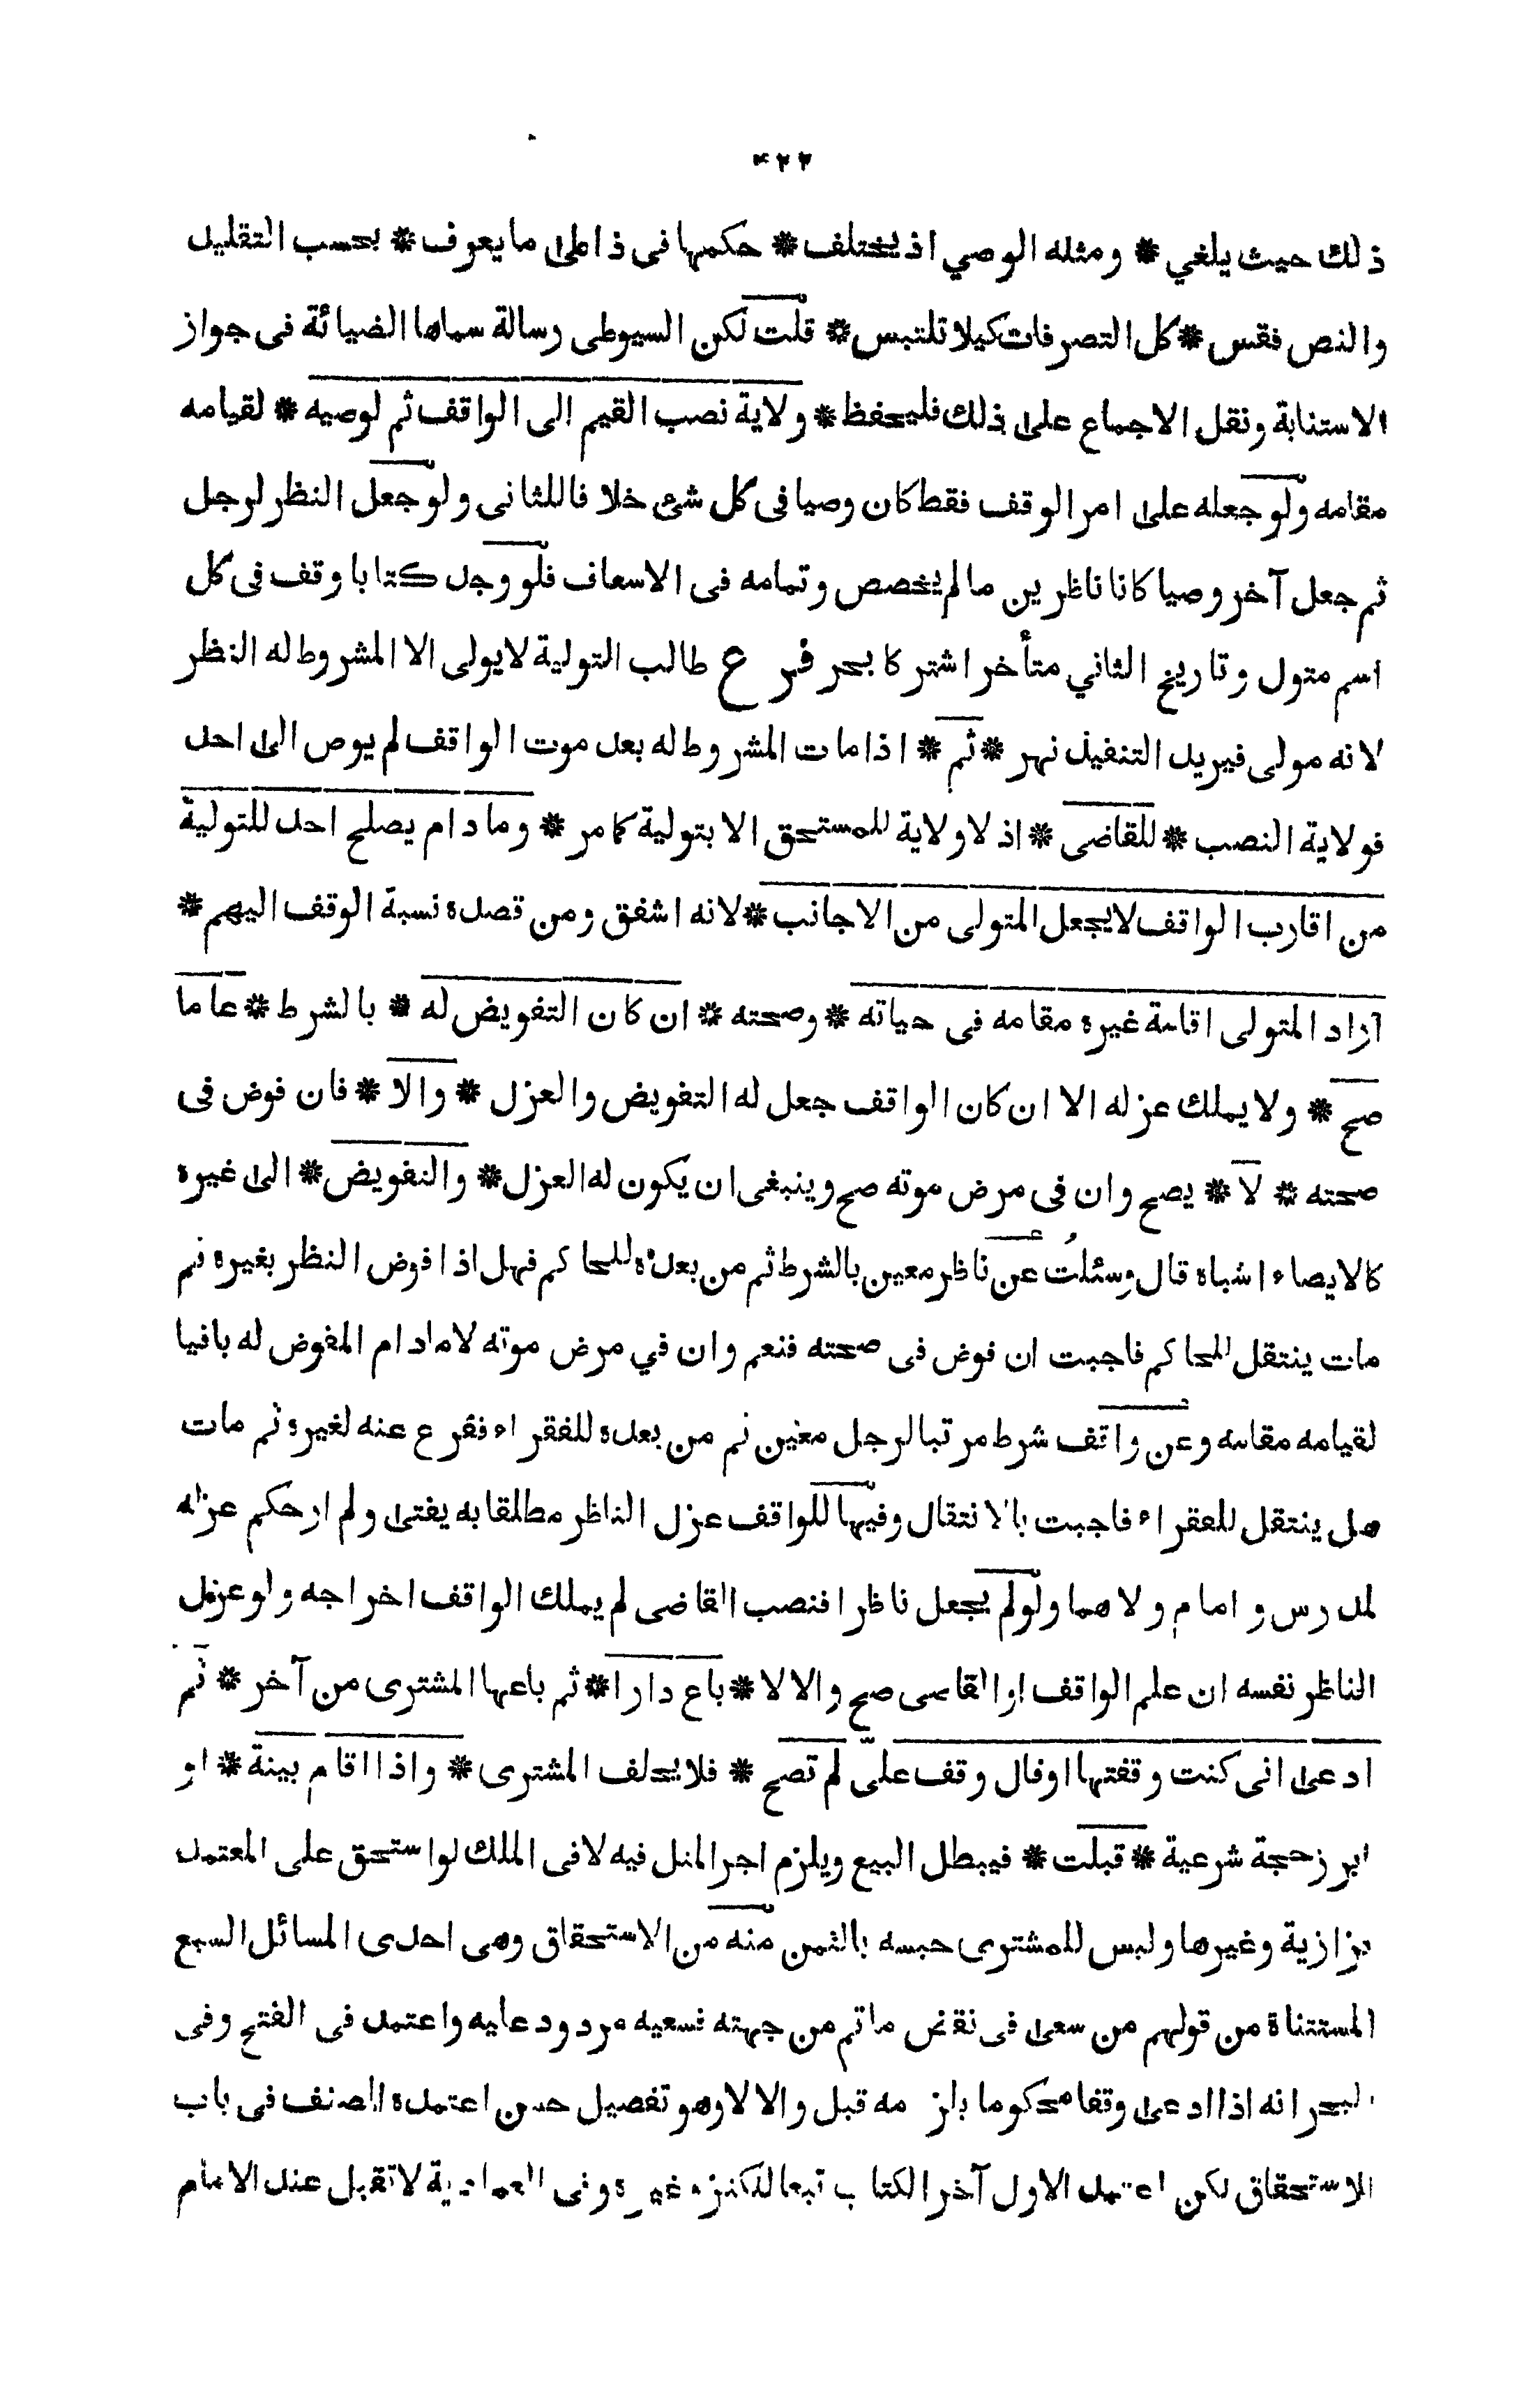 ٤٢٢
ذلك حيث يلغي * ومثله الوصي اذ يختلف * حكمها فى ذا على ما يعرف * بحسب التقليد
والنص فقس * كل التصرفات كيلا تلتبس * قلت لكن السيوطى رسالة سماها الضيائة فى جواز
الاستنابة ونقل الاجماع على ذلك فليحفظ * ولاية نصب القيم الى الواقف ثم لوصيه * لقيامه
مقامه ولو جعله على امر الوقف فقط كان وصيا فى كل شئ خلا فاللثانى ولو جعل النظر لرجل
ثم جعل آخر وصيا كانا ناظرين ما لم يخصص وتمامه فى الاسعاف فلو وجد كتا با وقف فى كل
اسم متول وتاريخ الثاني متأخر اشتركا بحر فرع طالب التولية لا يولى الا المشروط له النظر
لانه مولى فيريد التنفيذ نهر * ثم * اذا مات المشروط له بعد موت الواقف لم يوص الى احد
فولاية النصب * للقاضى * اذ لا ولاية للمستحق الا بتولية كما مر * وما دام يصلح احد للتولية
من اقارب الواقف لا يجعل المتولى من الاجانب * لانه اشفق ومن قصده نسبة الوقف اليهم *
اراد المتولى اقامة غيره مقامه فى حياته * وصحته * ان كان التفويض له * بالشرط * عاما
صح * ولا يملك عزله الا ان كان الواقف جعل له التفويض والعزل * والا * فان فوض فى
صحته * لا * يصح وان فى مرض موته صح وينبغى ان يكون له العزل * والتفويض * الى غيره
كالايصاء اشباه قال وسئلت عن ناظر معين بالشرط ثم من بعده للحاكم فهل اذا فوض النظر بغيره ثم
مات ينتقل للحاكم فاجبت ان فوض فى صحته فنعم وان في مرض موته لا مادام المفوض له باقيا
لقيامه مقامه وعن واقف شرط مرتبا لرجل معين ثم من بعده للفقراء ففرع عنه لغيره ثم مات
هل ينتقل للفقراء فاجبت بالانتقال وفيها للواقف عزل الناظر مطلقا به يفتى ولم ار حكم عزله
لمدرس و امام ولاهما ولو لم يجعل ناظرا فنصب القاضى لم يملك الواقف اخراجه ولو عزل
الناظر نفسه ان علم الواقف او القاضى صح والا لا * باع دارا * ثم باعها المشترى من آخر * ثم
ادعى انى كنت وقفتها او قال وقف علىّ لم تصح * فلا يحلف المشترى * واذا اقام بينة * او
ابرز حجة شرعية * قبلت * فيبطل البيع ويلزم اجر المثل فيه لا فى الملك لو استحق على المعتمد
بزازية وغيرها وليس للمشترى حبسه بالثمن منه من الاستحقاق وهى احدى المسائل السبع
المستثناة من قولهم من سعى فى نقض ما تم من جهته فسعيه مردود عليه واعتمد فى الفتح وفى
البحر انه اذا ادعى وقفا محكوما بلزومه قبل والا لا وهو تفصيل حسن اعتمده المصنف فى باب
الاستحقاق لكن اعتمد الاول آخر الكتاب تبعا للكنز وغيره وفى العمادية لا تقبل عند الامام